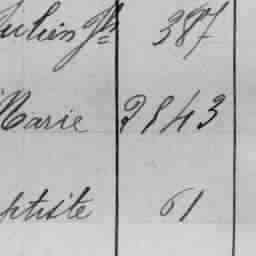 Julien Jh 387
Marie 2843
ptiste 61